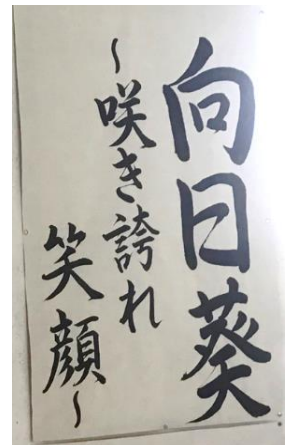 向日葵
～咲き誇れ
笑顔～